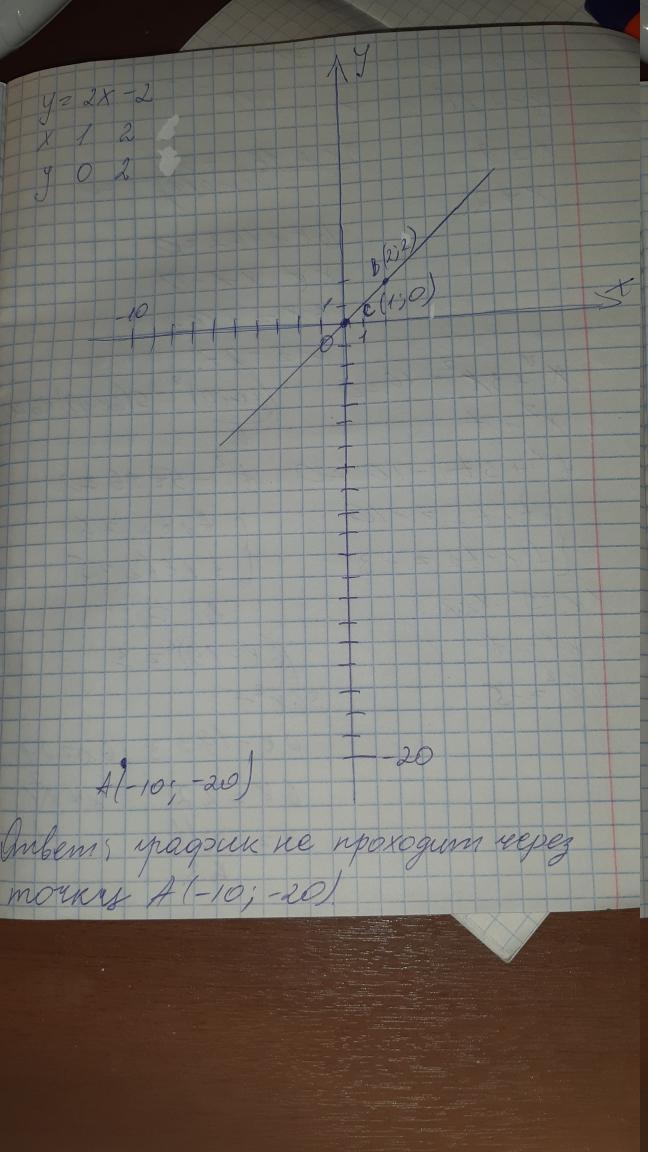 y = 2x - 2
x 1 2
y 0 2
y
B(2;2)
C(1;0)
x
-10
1
0
1
-20
A(-10; -20)
Ответ: график не проходит через
точку A(-10; -20)